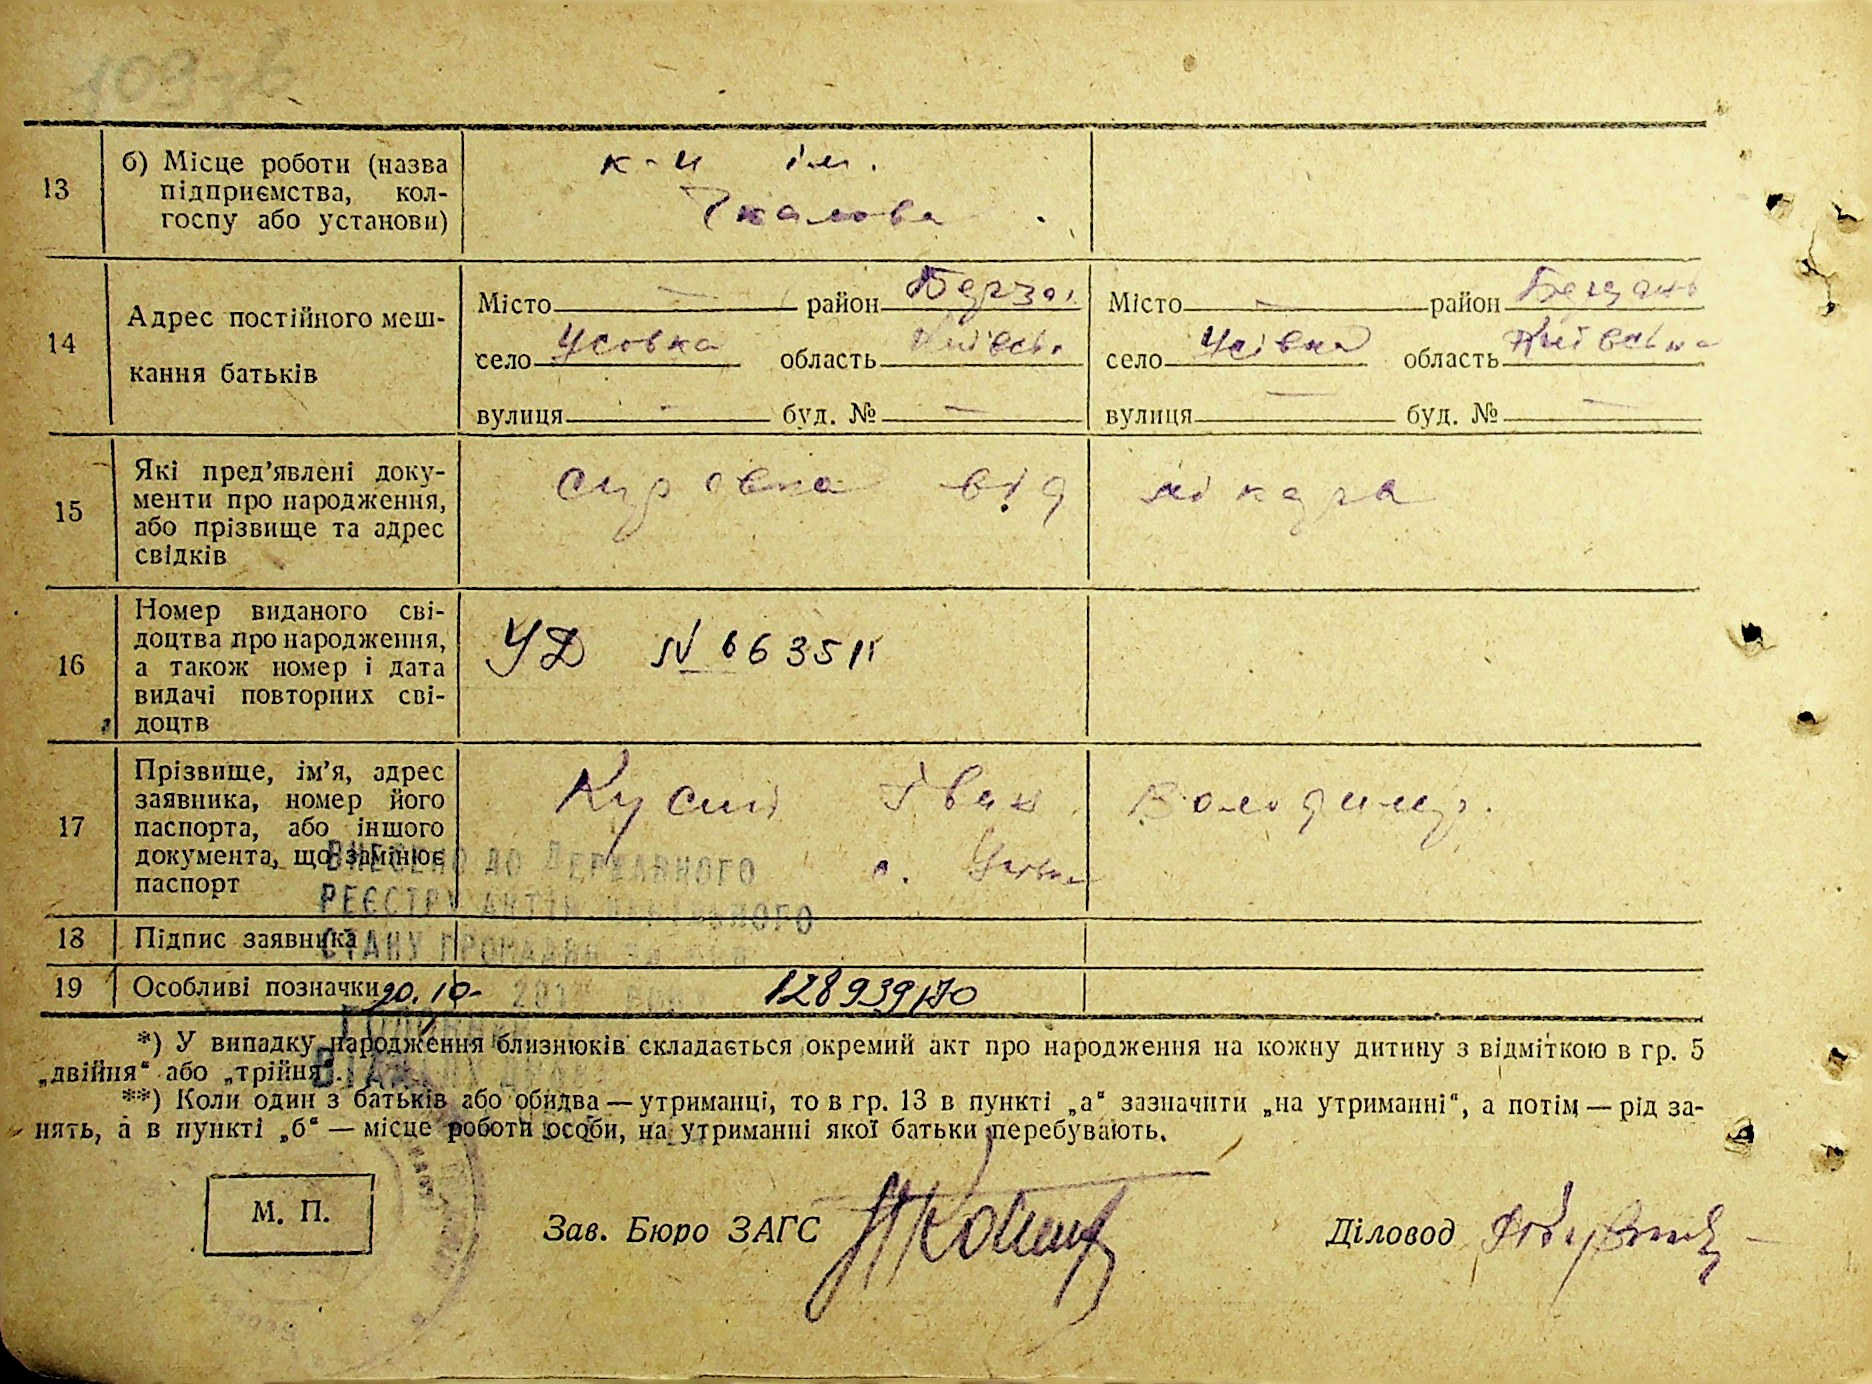 13
б) Місце роботи (назва
підприємства, кол-
госпу або установи)
к-п ім.
Чкалова
14
Адрес постійного меш-
кання батьків
Місто — район
село Усовка область Київськ.
вулиця — буд. № —
Місто — район Березань
село Усівка область Київська
вулиця — буд. № —
15
Які пред’явлені доку-
менти про народження,
або прізвище та адрес
свідків
справка від лікаря
16
Номер виданого сві-
доцтва про народження,
а також номер і дата
видачі повторних сві-
доцтв
УД №
17
Прізвище, ім’я, адрес
заявника, номер його
паспорта, або іншого
документа, що замінює
паспорт
Іван Володимир.
с.
ВНЕСЕНО ДО ДЕРЖАВНОГО
РЕЄСТРУ АКТІВ ЦИВІЛЬНОГО
СТАНУ ГРОМАДЯН ЗА
18
Підпис заявника
19
Особливі позначки
20.10-
*) У випадку народження близнюків складається окремий акт про народження на кожну дитину з відміткою в гр. 5
„двійня“ або „трійня“.
**) Коли один з батьків або обидва — утриманці, то в гр. 13 в пункті „а“ зазначити „на утриманні“, а потім — рід за-
нять, а в пункті „б“ — місце роботи особи, на утриманні якої батьки перебувають.
М. П.
Зав. Бюро ЗАГС
Діловод